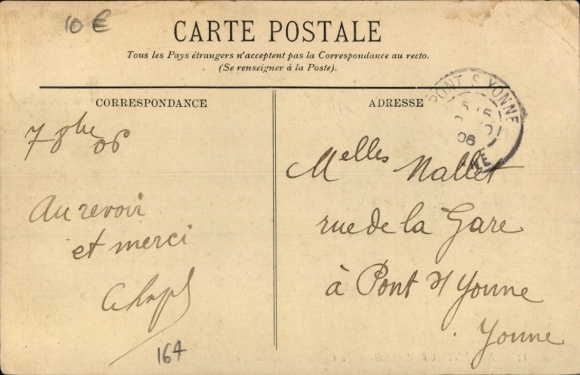 10 €
CARTE POSTALE
Tous les Pays étrangers n'acceptent pas la Correspondance au recto.
(Se renseigner à la Poste).
CORRESPONDANCE
ADRESSE
PONT S YONNE
06
7 8bre 06
Au revoir
et merci
Melles Nallet
rue de la Gare
à Pont s/ Yonne
Yonne
164